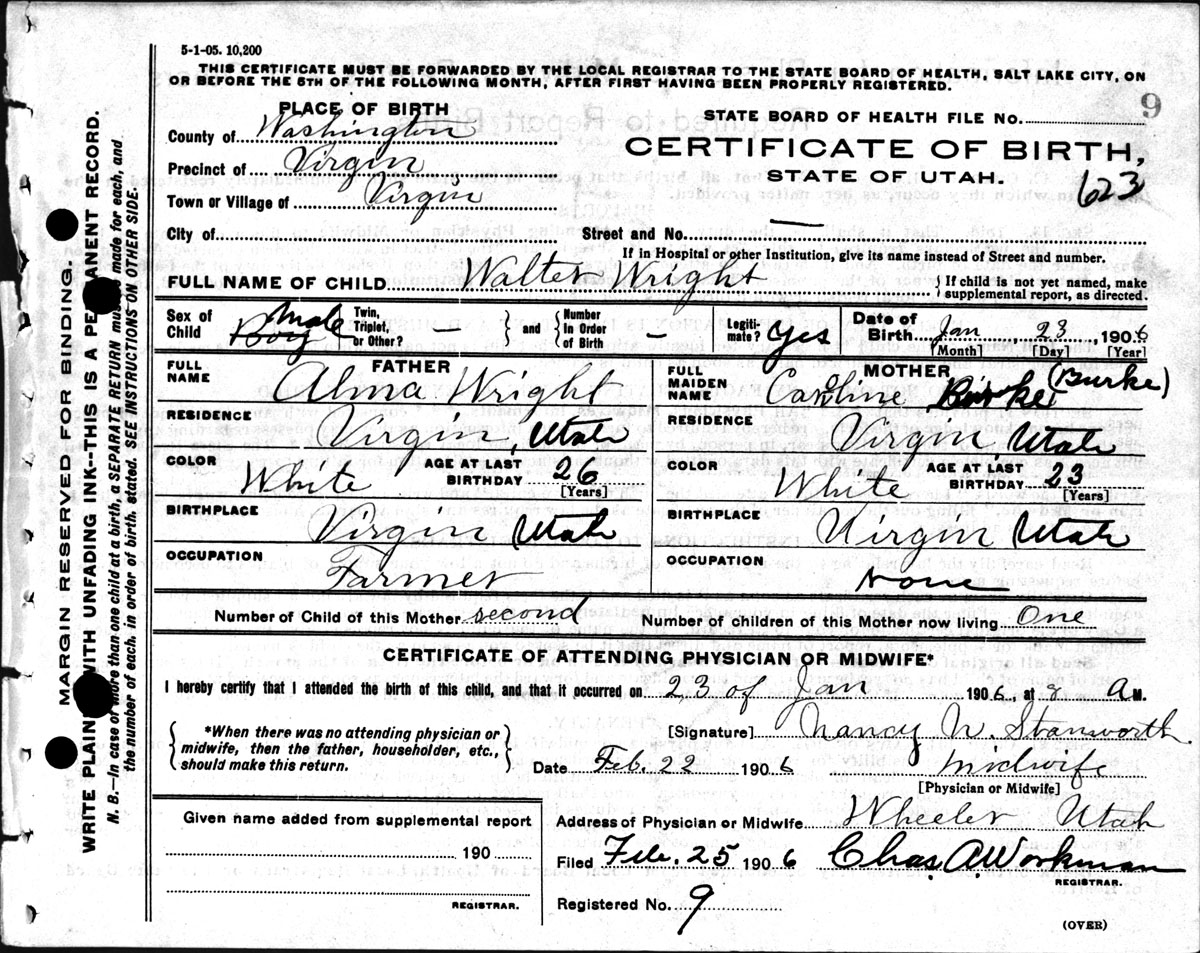 5-1-05. 10,200
THIS CERTIFICATE MUST BE FORWARDED BY THE LOCAL REGISTRAR TO THE STATE BOARD OF HEALTH, SALT LAKE CITY, ON
OR BEFORE THE 5TH OF THE FOLLOWING MONTH, AFTER FIRST HAVING BEEN PROPERLY REGISTERED.
9
PLACE OF BIRTH
STATE BOARD OF HEALTH FILE NO.
County of Washington
CERTIFICATE OF BIRTH,
Precinct of Virgin
STATE OF UTAH.
623
Town or Village of Virgin
City of
Street and No. —
If in Hospital or other Institution, give its name instead of Street and number.
FULL NAME OF CHILD Walter Wright
{If child is not yet named, make
supplemental report, as directed.
Sex of Child Boy Male
Twin, Triplet, or Other? } and { Number In Order of Birth —
Legiti-mate? Yes
Date of Birth Jan, 23, 1906
[Month] [Day] [Year]
FATHER
FULL NAME Alma Wright
RESIDENCE Virgin, Utah
COLOR White AGE AT LAST BIRTHDAY 26
[Years]
BIRTHPLACE Virgin Utah
OCCUPATION Farmer
MOTHER
FULL MAIDEN NAME Caroline (Burke)
RESIDENCE Virgin, Utah
COLOR White AGE AT LAST BIRTHDAY 23
[Years]
BIRTHPLACE Virgin Utah
OCCUPATION None
Number of Child of this Mother second Number of children of this Mother now living One
CERTIFICATE OF ATTENDING PHYSICIAN OR MIDWIFE*
I hereby certify that I attended the birth of this child, and that it occurred on 23 of Jan 1906, at A M.
{*When there was no attending physician or
midwife, then the father, householder, etc.,
should make this return.}
[Signature] Nancy N. Stanworth
Date Feb. 22 1906 Midwife
[Physician or Midwife]
Given name added from supplemental report
190
REGISTRAR.
Address of Physician or Midwife Wheeler Utah
Filed Feb. 25 1906 Chas. A. Workman
REGISTRAR.
Registered No. 9
(OVER)
MARGIN RESERVED FOR BINDING.
WRITE PLAIN WITH UNFADING INK--THIS IS A PERMANENT RECORD.
N. B.—In case of more than one child at a birth, a SEPARATE RETURN must be made for each, and
the number of each, in order of birth, stated. SEE INSTRUCTIONS ON OTHER SIDE.